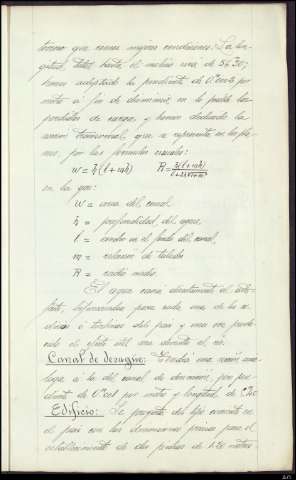 terreno que reuna mejores condiciones. La lon-
gitud total hasta el molino será de 56.30;
hemos adoptado la pendiente de 0.0005 por
metro á fin de disminuir en lo posible las
pérdidas de carga, y hemos deducido la
sección transversal que se representa en los pla-
nos, por las fórmulas usuales:
w = h(l + mh) R = h(l+mh) / l+2h√1+m²
en la que:
w = area del canal.
h = profundidad del agua.
l = ancho en el fondo del canal,
m = relación de taludes
R = radio medio.
El agua directamente al
para cada una de las
ó turbinas del par y una vez
el efecto útil
Canal de desagüe: Tendrá una sección aná-
loga á la del canal de derivación, por pen-
diente de 0.001 por metro y longitud de
Edificio: Se proyecta del tipo corriente en
el país con las dimensiones precisas para el
establecimiento de dos piedras de 1.30 metros